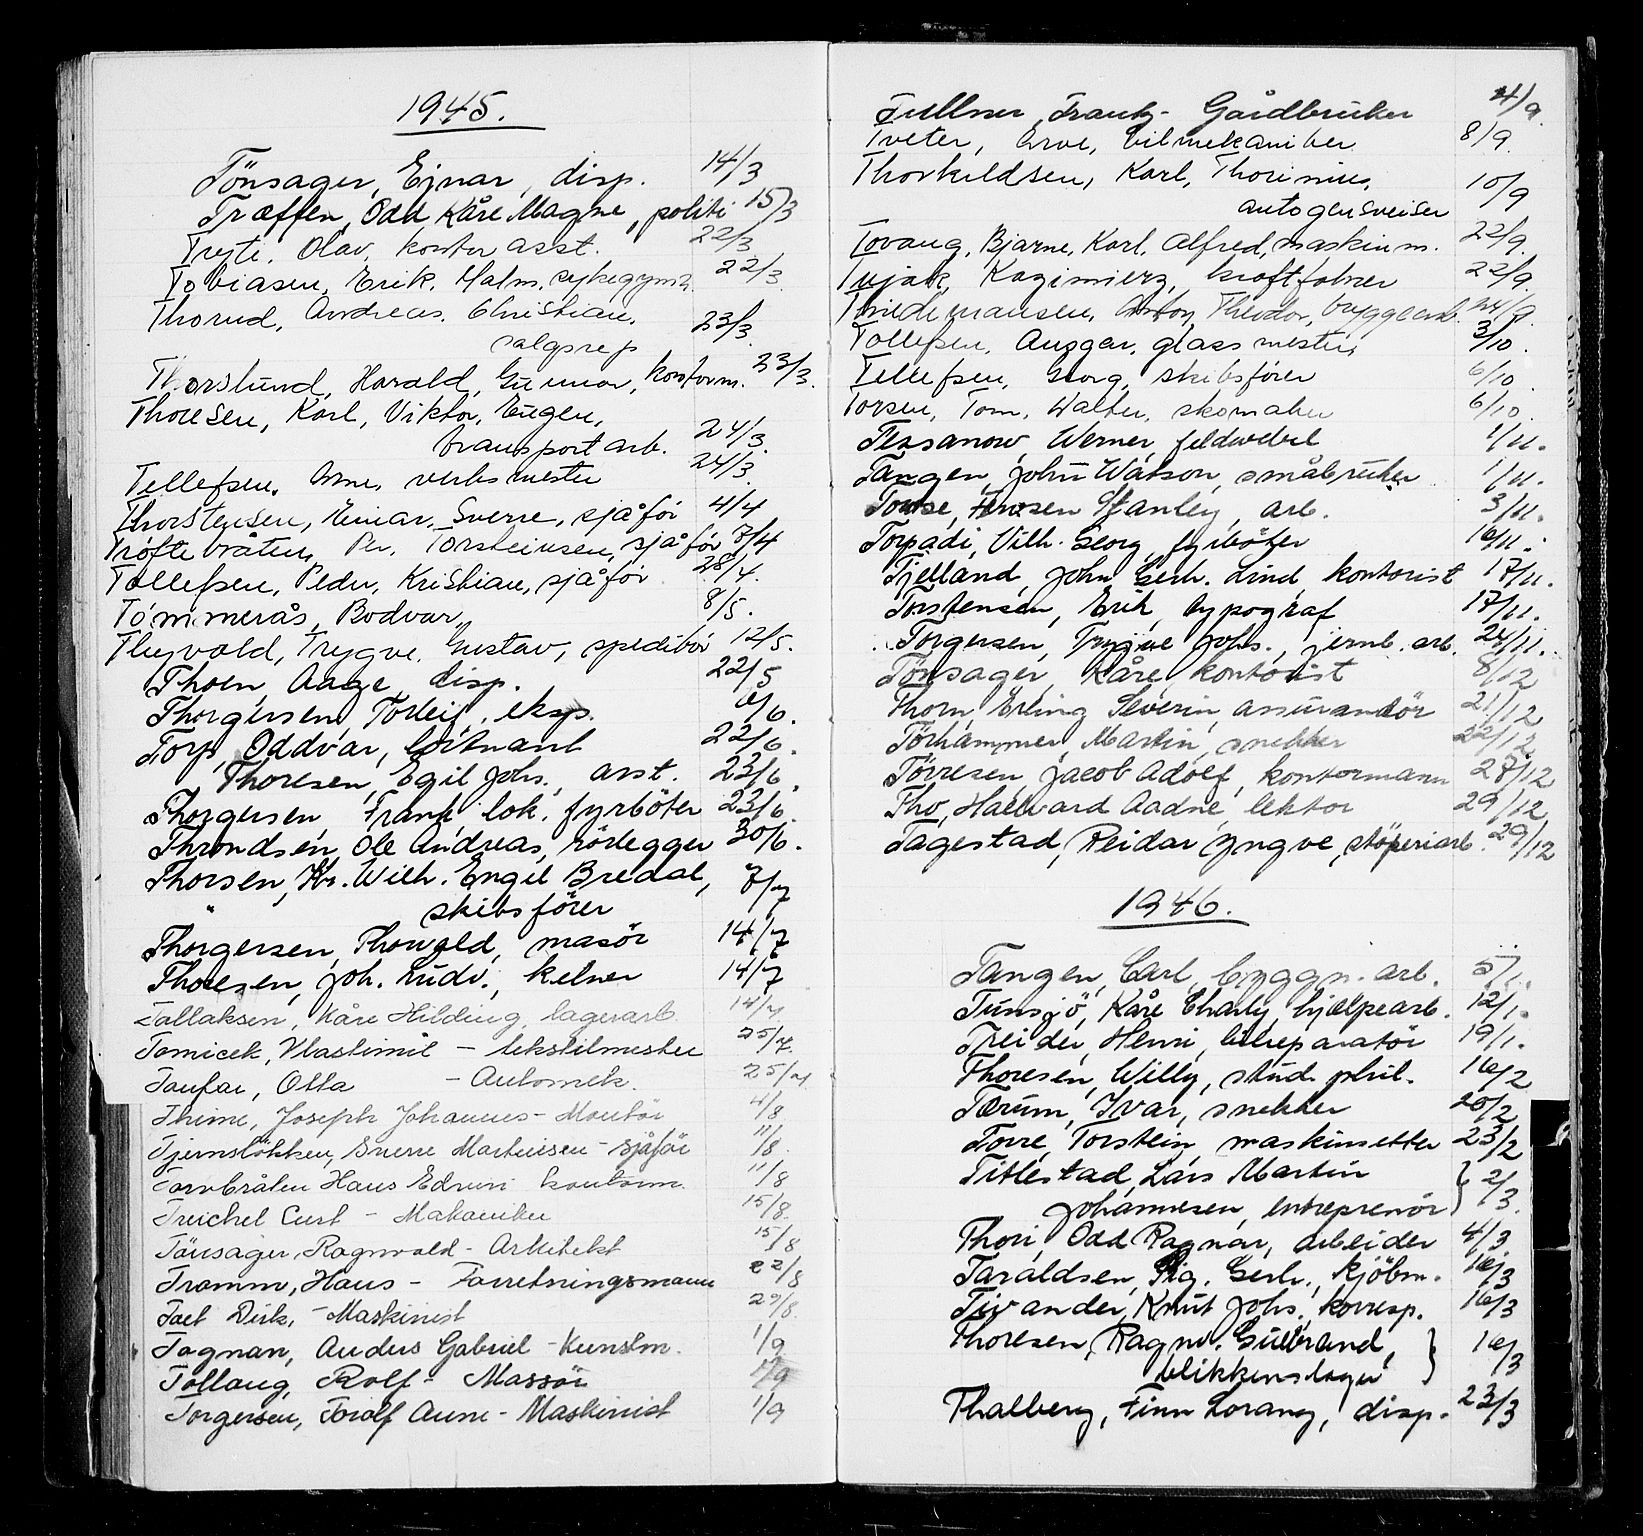 1945.
Tönsager, Ejnar, disp. 14/3
Træffen, Odd Kåre Magne, politi 15/3
Tryti, Olav, kontor asst. 22/3
Tobiasen, Erik, Malm, sykegymn. 22/3.
Thorud, Andreas, Christian,
salgsrep 23/3.
Thorslund, Harald, Gunnar, kontorm. 23/3.
Thoresen, Karl, Viktor, Eugen,
transport arb. 24/3.
Tellefsen, Arne, verksmester 24/3.
Thorstensen, Einar, Sverre, sjåför 4/4
Tröftebråten, Per, Torsteinsen, sjåför 7/4
Tollefsen, Peder, Kristian, sjåför 28/4.
Tömmerås, Bodvar, 8/5.
Thygvold, Trygve, Gustav, speditör 12/5.
Thoen, Aage, disp. 22/5
Thorgersen, Torleif, eksp. /6.
Torp, Oddvar, löitnant 22/6.
Thoresen, Egil Johs., asst. 23/6
Thorgersen, Frank, lok. fyrböter 23/6.
Throndsen, Ole Andreas, rörlegger 30/6.
Thorsen, Kr. Wilh. Engel Bredal, 7/7
" skibsförer
Thorgersen, Thorvald, masör 14/7
Thoresen, Joh. Ludv., kelner 14/7
Tallaksen, Kåre Hilding, lagerarb. 14/7
Tomicek, Vlastimil - tekstilmester 25/7.
Taufar, Otta - Automek. 25/7
Thime, Joseph Johannes - Montör 4/8
Tjernslökken, Sverre Martinsen - sjåför 11/8.
Tornbråten Hans Edvin kontorm. 11/8
Treichel Curt - Mekaniker 15/8.
Tönsager, Ragnvald - Arkitekt 15/8
Tramm, Hans - Forretningsmann 22/8
Taet Dirk, - Maskinist 29/8.
Tagman, Anders Gabriel - Kunstm. 1/9
Tollaug, Rolf - Massör 1/9
Torgersen, Torolf Arne - Maskinist 1/9
Tullner, Frantz - Gårdbruker 4/9.
Tveter, Arve, bilmekaniker 8/9.
Thorkildsen, Karl, Thorinius,
autogensveiser 10/9
Tovaug, Bjarne, Karl, Alfred, maskinm. 22/9.
Tujak, Kazimierz, kraftfahrer 22/9.
Thiedemansen, Anton, Theodor, bryggearb. 24/9.
Tollefsen, Ansgar, glassmester, 3/10.
Tellefsen, Georg, skibsförer 6/10.
Torsen, Tom, Walter, skomaker 6/10.
Tessanow, Werner, feldwebel 1/11.
Tangen, John Watson, småbruker 1/11.
Towse, Hansen Stanley, arb. 3/11.
Torpadi, Vilh. Georg, fyrböter 16/11.
Tjelland, John Gerh. Lind, kontorist 17/11.
Torstensen, Erik, typograf 17/11.
Torgersen, Trygve Johs., jernb. arb. 24/11.
Tönsager, Kåre, kontorist 8/12
Thorn, Erling Severin, assurandör 21/12
Törhammer, Martin, snekker 22/12
Törresen, Jacob Adolf, kontormann 28/12
Tho, Haavard Aadne, lektor 29/12
Tagestad, Reidar Yngve, støperiarb. 29/12
1946.
Tangen, Carl, byggn. arb. 5/1.
Tunsjö, Kåre Charly, hjælpearb. 12/1.
Treider, Henri, bilreparatör 19/1.
Thoresen, Willy, stud. phil. 16/2
Tærum, Ivar, snekker 20/2
Torre, Torstein, maskinsetter 23/2
Titlestad, Lars Martin } 2/3.
Johannesen, entreprenör
Thori, Odd Ragnar, arbeider 4/3
Taraldsen, Sig. Gerh., kjöbm. 16/3
Tivander, Knut Johs, korresp. 16/3
Thoresen, Ragnv. Gulbrand, } 16/3
blikkenslager
Thalberg, Finn Lorang, disp. 23/3